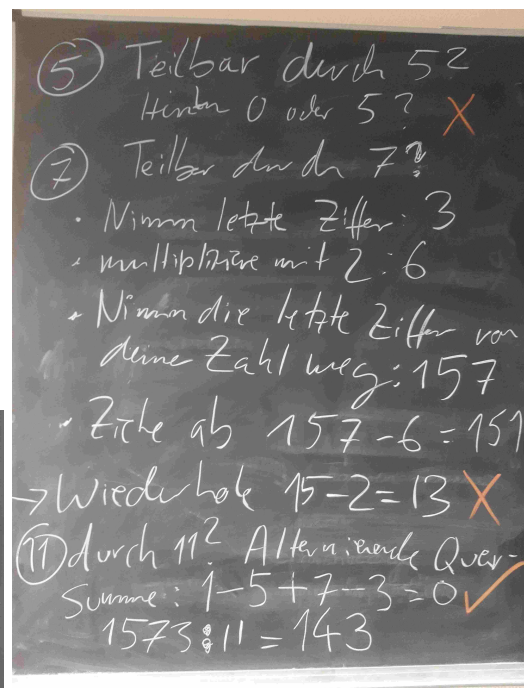 ⑤ Teilbar durch 5?
Hinten 0 oder 5? X
⑦ Teilbar durch 7?
• Nimm letzte Ziffer: 3
• multipliziere mit 2: 6
• Nimm die letzte Ziffer von
deiner Zahl weg: 157
• Ziehe ab 157-6=151
→ Wiederhole 15-2=13 X
⑪ durch 11? Alternierende Quer-
summe: 1-5+7-3=0 ✓
1573:11=143